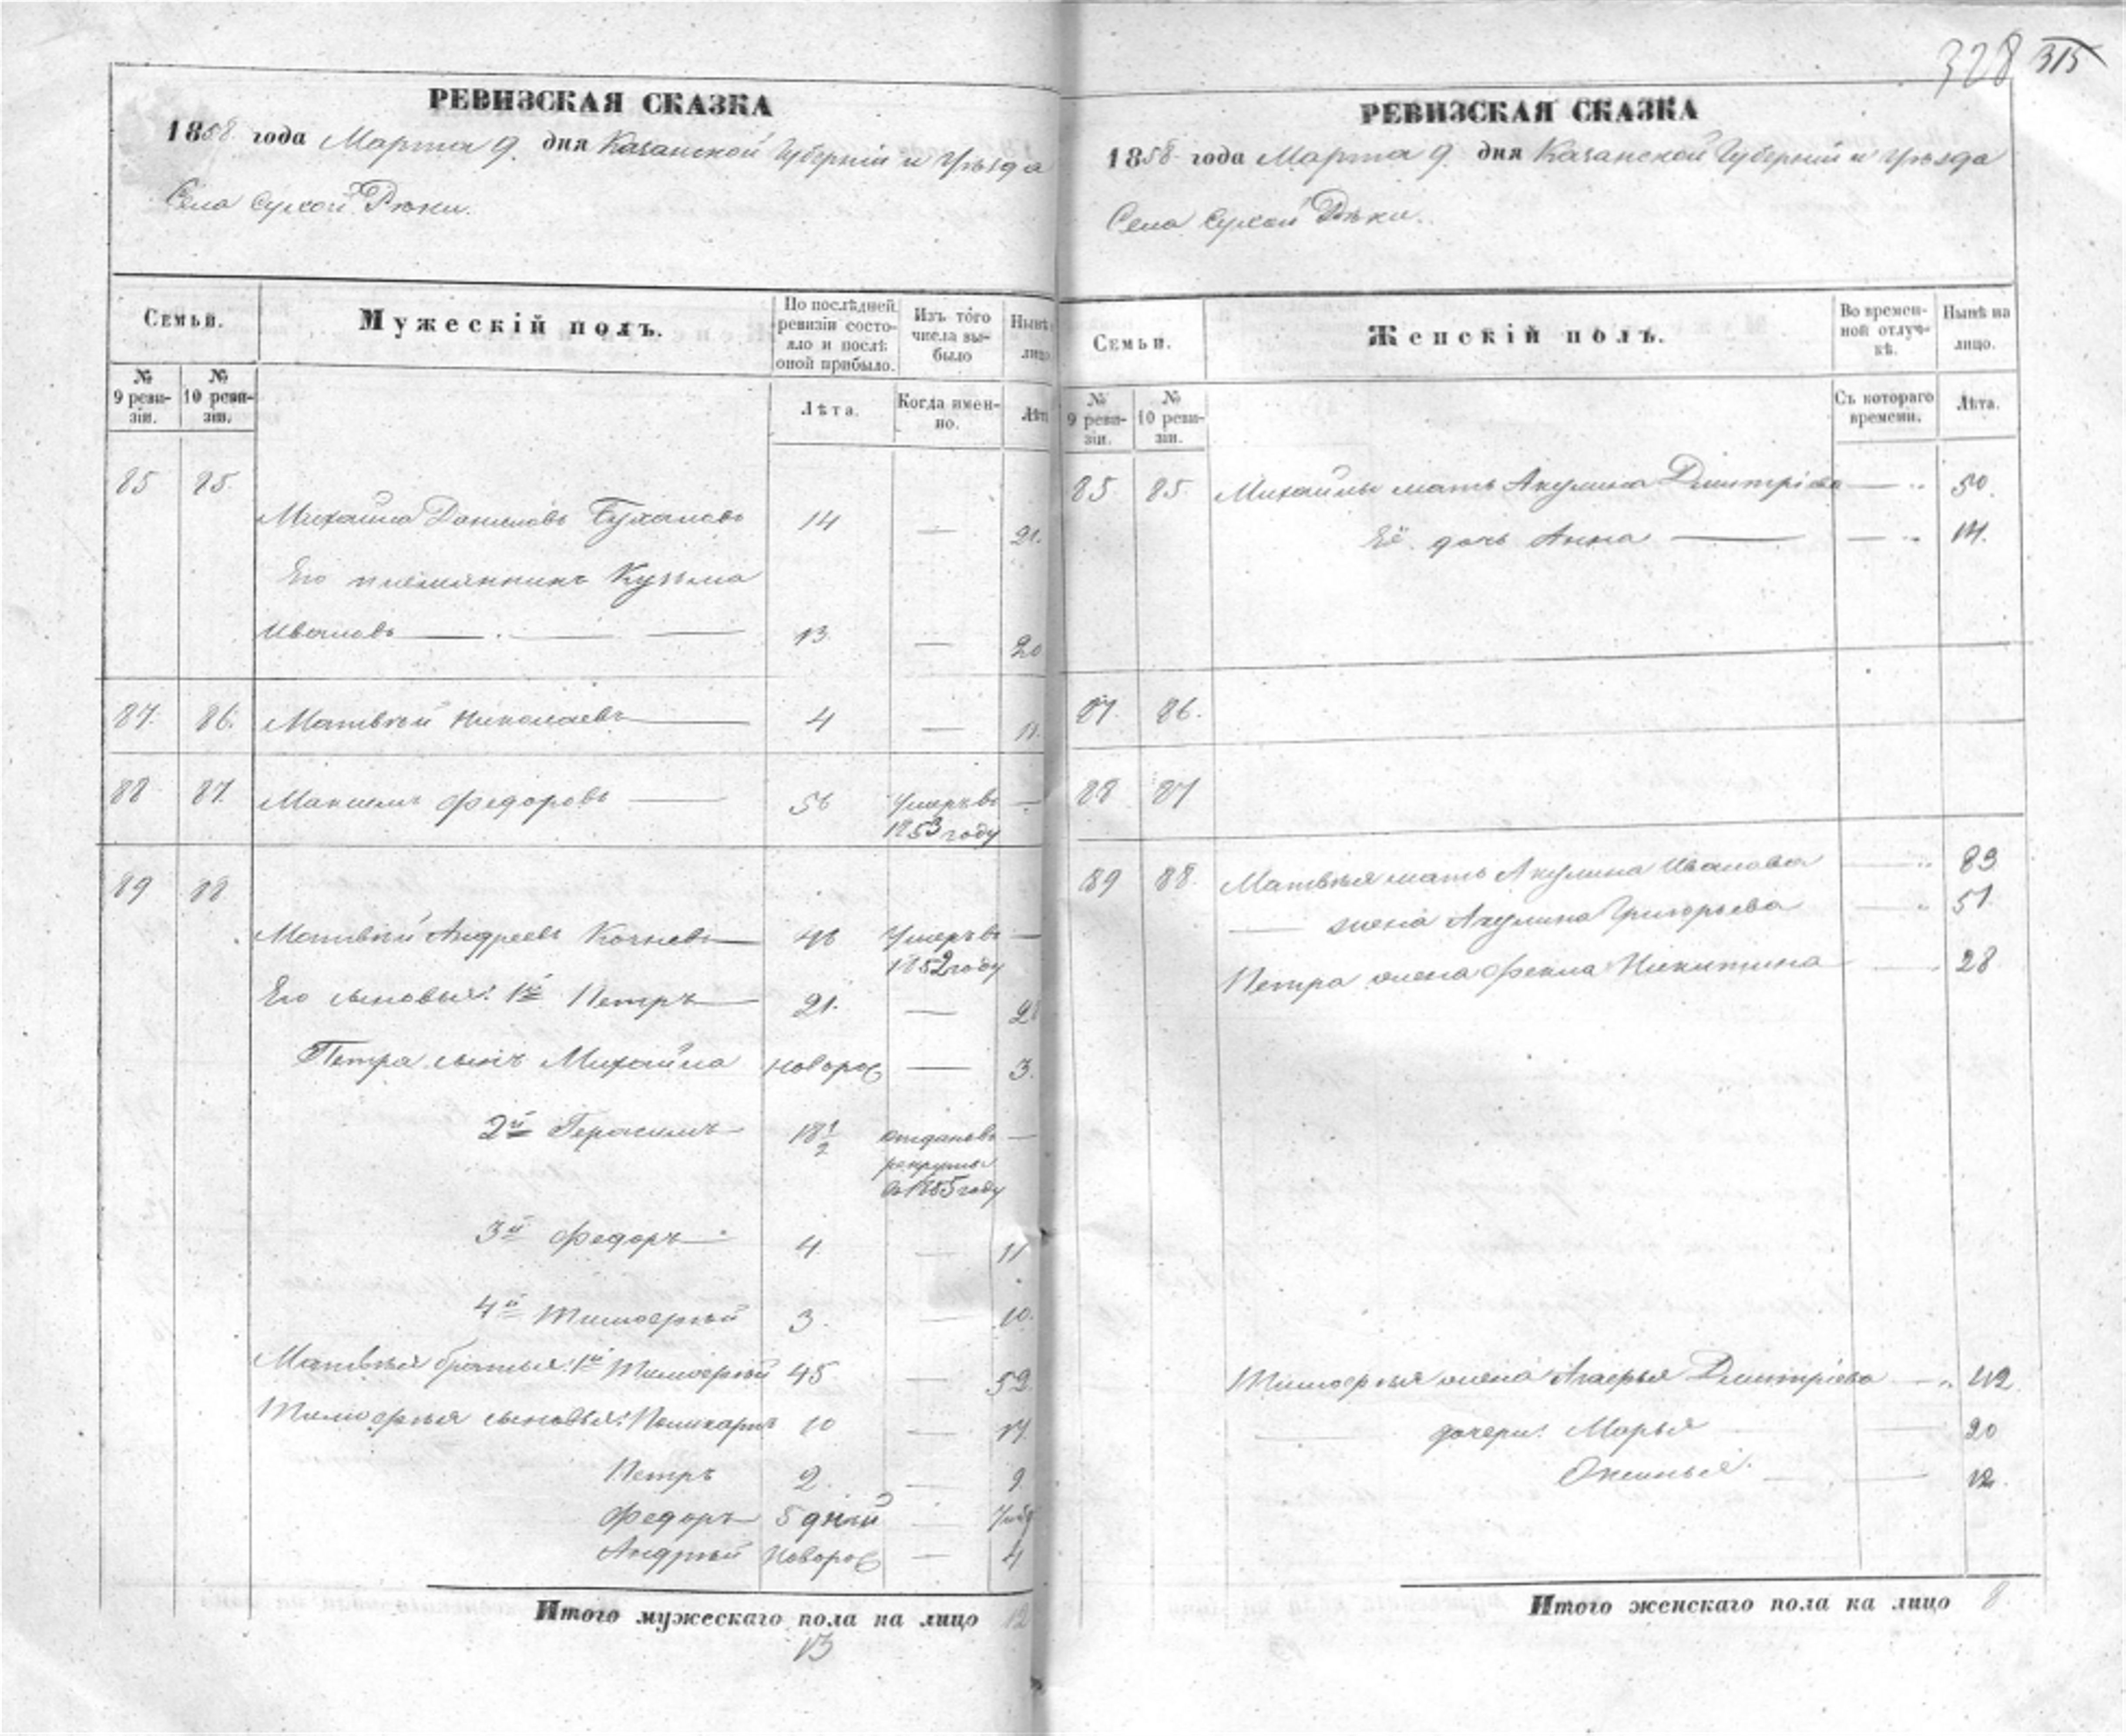 328 315
РЕВИЗСКАЯ СКАЗКА
1858 года Марта 9. дня Казанской Губернiи и Уѣзда
Села Сухой Рѣки.
Семьи.
Мужескiй полъ.
По послѣдней ревизiи состояло и послѣ оной прибыло.
Изъ того числа выбыло
Нынѣ лицо
№ 9 ревизiи.
№ 10 ревизiи.
Лѣта.
Когда именно.
Лѣт
85 85. Михайла Даниловъ 14 — 21.
Его племянникъ Кузьма
Ивановъ 13 — 20
87. 86. Матвѣй Николаевъ 4 — 11.
88 87. Максимъ Федоровъ 56 Умеръ въ —
1853 году
89 88.
Матвѣй Андреевъ Кочневъ 46 Умеръ въ —
1852 году
Его сыновья: 1й Петръ 21. — 28
Петра сынъ Михайла новорож — 3.
2й Герасимъ 18 1/2 отданъ въ —
рекруты
въ 1855 году
3й Федоръ 4 — 11
4й Тимофѣй 3. — 10.
Матвѣя братья: 1й Тимофѣй 45 — 52
Тимофѣя сыновья: Поликарпъ 10 — 17.
Петръ 2. — 9.
Федоръ 5 дней —
Андрѣй новорож — 4
Итого мужескаго пола на лицо 12
13
РЕВИЗСКАЯ СКАЗКА
1858 года Марта 9. дня Казанской Губернiи и Уѣзда
Села Сухой Рѣки.
Семьи.
Женскiй полъ.
Во временной отлучкѣ.
Нынѣ на лицо.
№ 9 ревизiи.
№ 10 ревизiи.
Съ котораго времени.
Лѣта.
85 85. Михайлы мать Акулина Дмитрiева — 50.
Её дочь Анна — 14.
87. 86.
88 87
89 88. Матвѣя мать Акулина Иванова — 83
— жена Акулина Григорьева — 51.
Петра жена Фекла Никитина — 28
Тимофѣя жена Агафья Дмитрiева — 42.
дочери: Марья — 20
Оксинья. — 12.
Итого женскаго пола на лицо 8